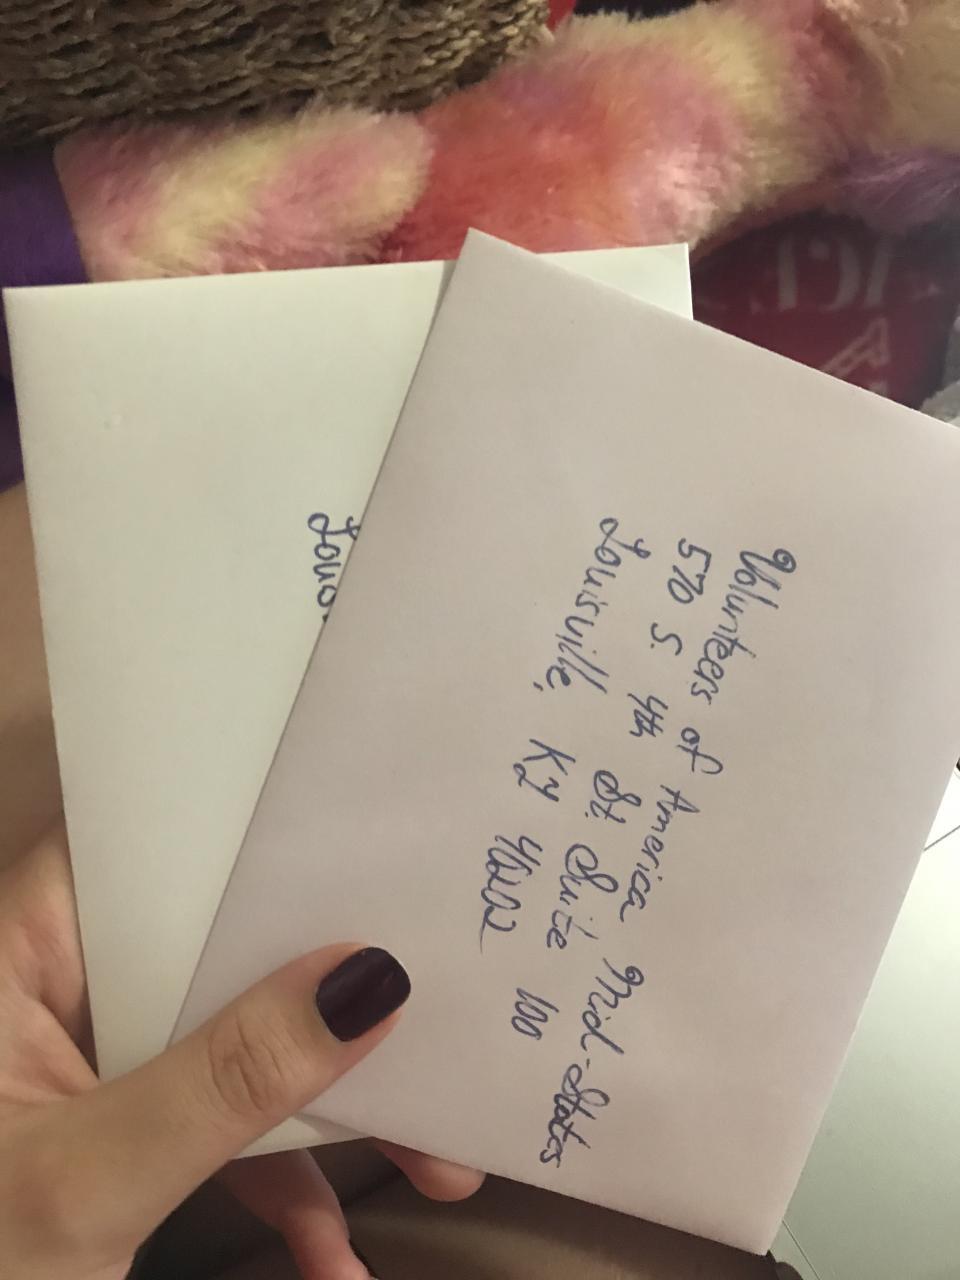 Volunteers of America Mid-States
570 S. 4th St. Suite 100
Louisville, Ky 40202
Lou